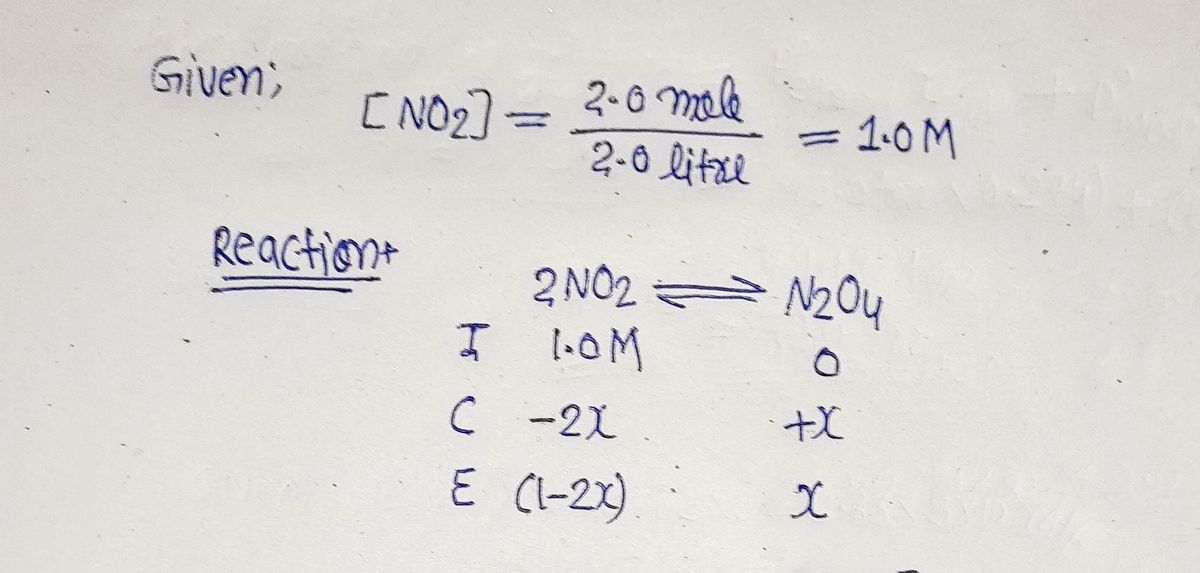 Given;
[NO2] = 2.0 mole / 2.0 litre = 1.0 M
Reaction+
2NO2 ⇌ N2O4
I 1.0M 0
C -2x +x
E (1-2x) x